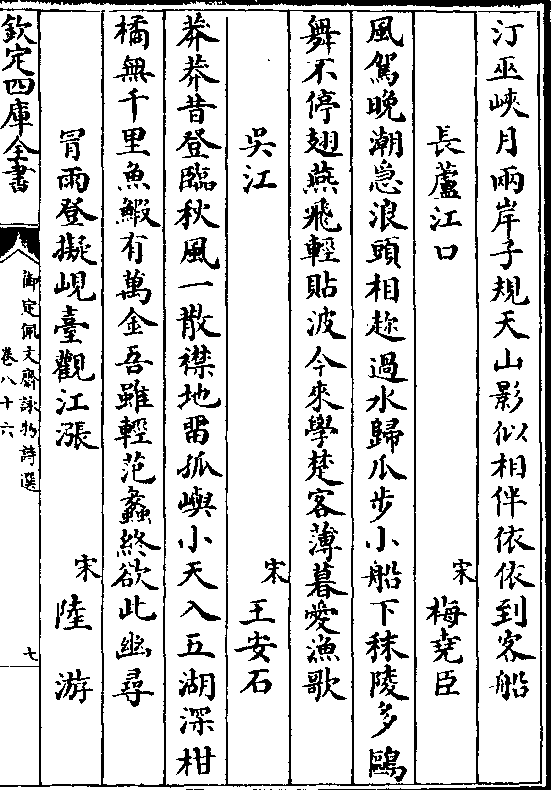 汀巫峽月兩岸子規天山影似相伴依依到客船
長蘆江口 宋 梅堯臣
風駕晚潮急浪頭相趂過水歸瓜步小船下秣陵多鷗
舞不停翅燕飛輕貼波今來學楚客薄暮愛漁歌
吳江 宋 王安石
莽莽昔登臨秋風一散襟地留孤嶼小天入五湖深柑
橘無千里魚鰕有萬金吾雖輕范蠡終欲此幽尋
冐雨登擬峴臺觀江漲 宋 陸游
欽定四庫全書
御定佩文齋詠物詩選
卷八十六
七